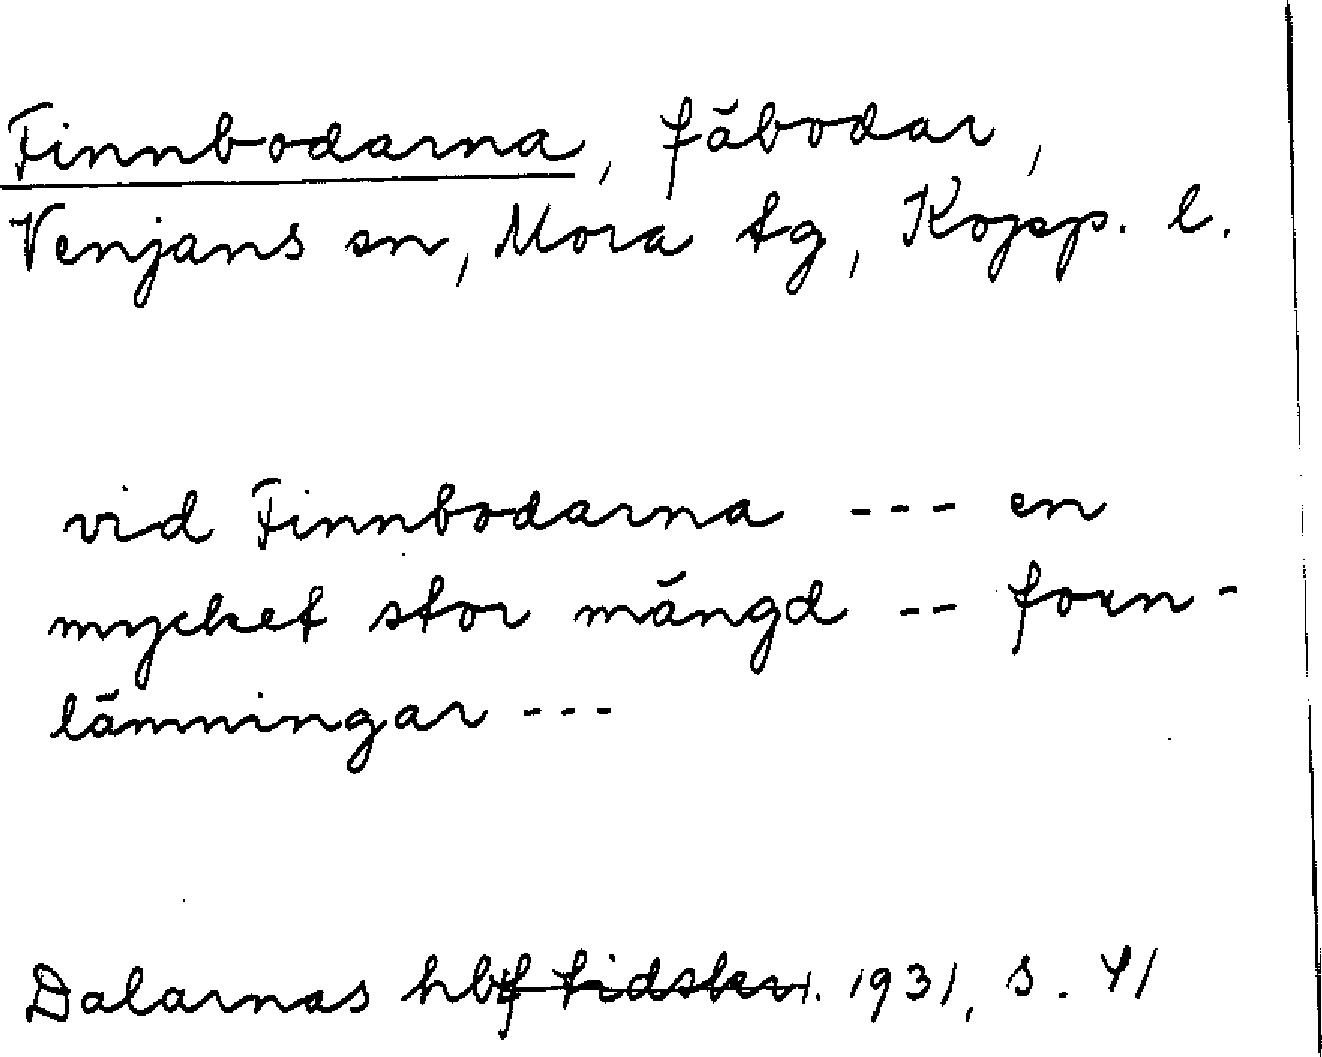 Finnbodarna, fäbodar,
Venjans sn, Mora tg, Kopp. l.
vid Finnbodarna --- en
mycket stor mängd -- forn-
lämningar ---
Dalarnas hbf tidskr. 1931, s. 41